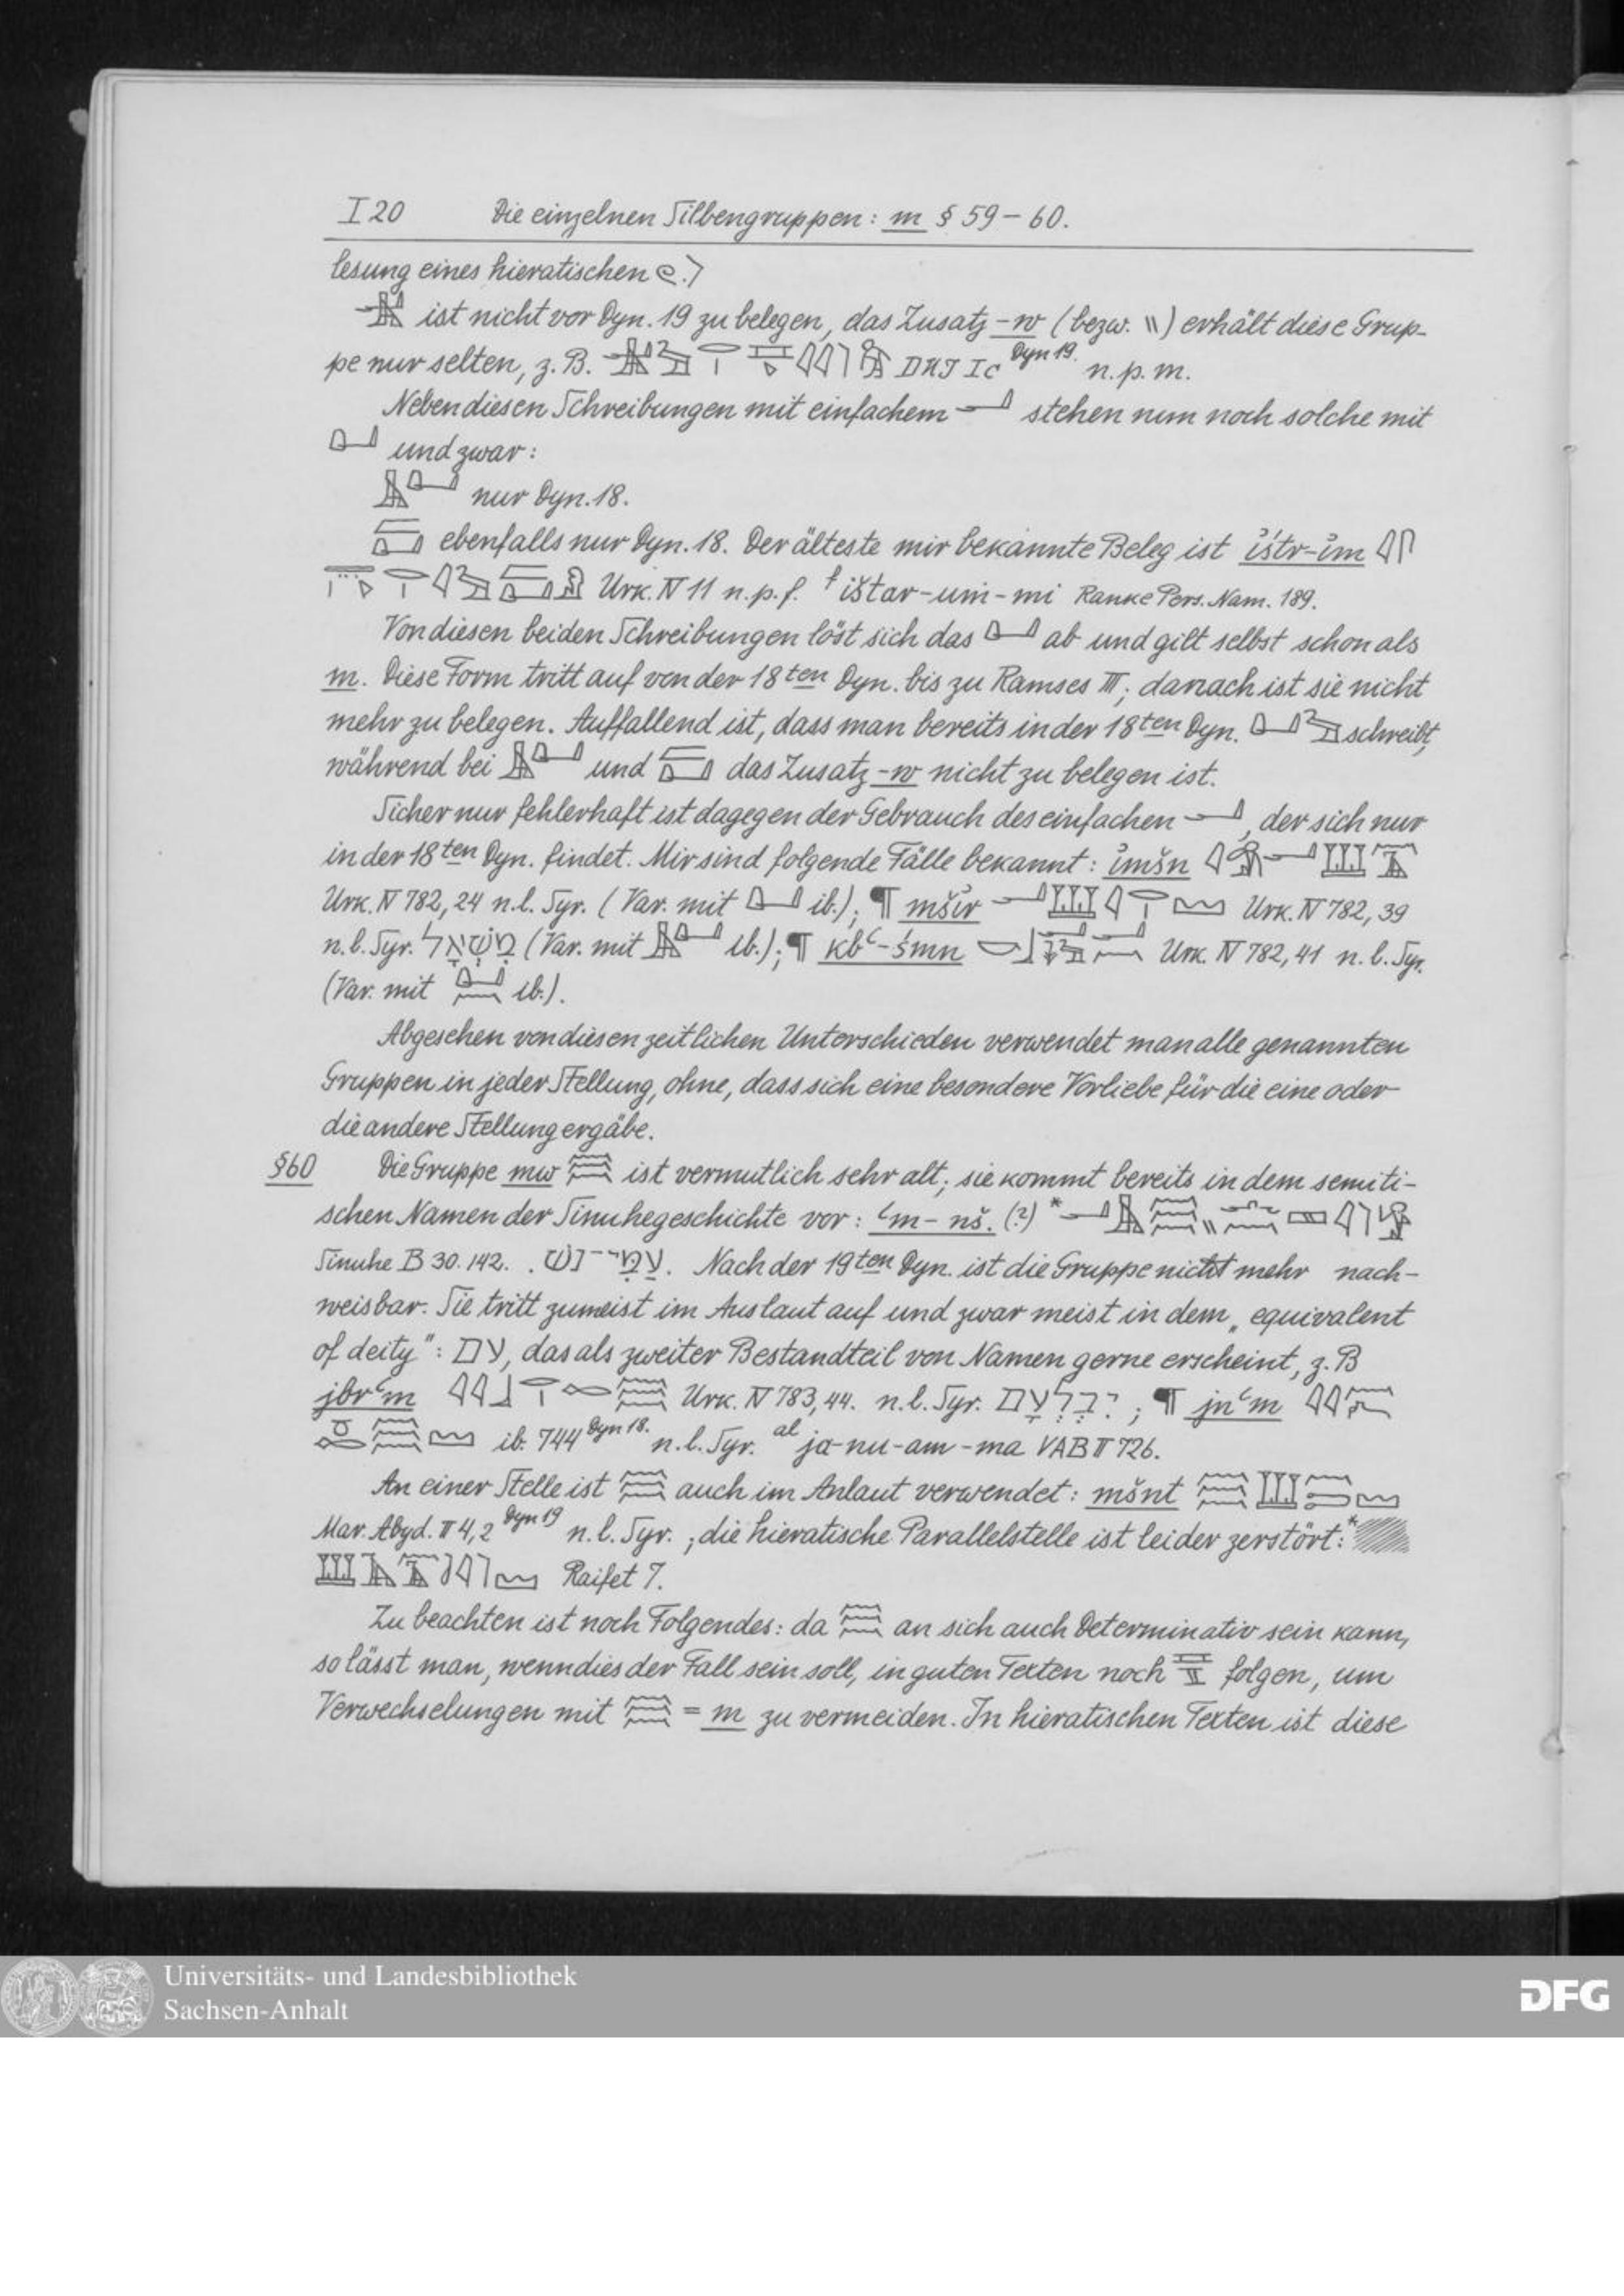 I 20 Die einzelnen Silbengruppen: m § 59 – 60.
lesung eines hieratischen .)
ist nicht vor Dyn. 19 zu belegen, das Zusatz-w (bezw. \\) erhält diese Grup-
pe nur selten, z. B. Dyn 19. n. p. m.
Neben diesen Schreibungen mit einfachem stehen nun noch solche mit
und zwar:
nur Dyn. 18.
ebenfalls nur Dyn. 18. Der älteste mir bekannte Beleg ist i̓štr-i̓m
Urk. IV 11 n. p. f. f ištar-um-mi Ranke Pers. Nam. 189.
Von diesen beiden Schreibungen löst sich das ab und gilt selbst schon als
m. Diese Form tritt auf von der 18ten Dyn. bis zu Ramses III; danach ist sie nicht
mehr zu belegen. Auffallend ist, dass man bereits in der 18ten Dyn. schreibt,
während bei und das Zusatz-w nicht zu belegen ist.
Sicher nur fehlerhaft ist dagegen der Gebrauch des einfachen , der sich nur
in der 18ten Dyn. findet. Mir sind folgende Fälle bekannt: i̓mšn
Urk. IV 782, 24 n. l. Syr. (Var. mit ib.); ¶ mši̓r Urk. IV 782, 39
n. l. Syr. מִשְׁאָל (Var. mit ib.); ¶ kbꜥ-śmn Urk. IV 782, 41 n. l. Syr.
(Var. mit ib.).
Abgesehen von diesen zeitlichen Unterschieden verwendet man alle genannten
Gruppen in jeder Stellung, ohne, dass sich eine besondere Vorliebe für die eine oder
die andere Stellung ergäbe.
§60 Die Gruppe mw 𓈗 ist vermutlich sehr alt; sie kommt bereits in dem semiti-
schen Namen der Sinuhegeschichte vor: ꜥm-nš. (?) *
Sinuhe B 30. 142. . עַמִּי־נשׁ. Nach der 19ten Dyn. ist die Gruppe nicht mehr nach-
weisbar. Sie tritt zumeist im Auslaut auf und zwar meist in dem „equivalent
of deity": עם, das als zweiter Bestandteil von Namen gerne erscheint, z. B
jbrꜥm Urk. IV 783, 44. n. l. Syr. יִבְלְעָם ; ¶ jnꜥm
ib. 744 Dyn 18. n. l. Syr. al ja-nu-am-ma VAB II 726.
An einer Stelle ist 𓈗 auch im Anlaut verwendet: mšnt
Mar. Abyd. II 4, 2 Dyn 19 n. l. Syr. ; die hieratische Parallelstelle ist leider zerstört: *
Raifet 7.
Zu beachten ist noch Folgendes: da 𓈗 an sich auch Determinativ sein kann,
so lässt man, wenn dies der Fall sein soll, in guten Texten noch folgen, um
Verwechselungen mit 𓈗 = m zu vermeiden. In hieratischen Texten ist diese
Universitäts- und Landesbibliothek
Sachsen-Anhalt
DFG